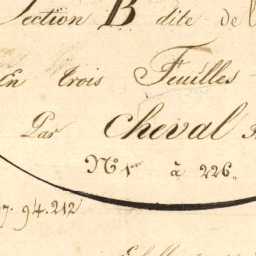 Section B dite de
En trois Feuilles
Par Cheval
N° 1er à 226.
94.212